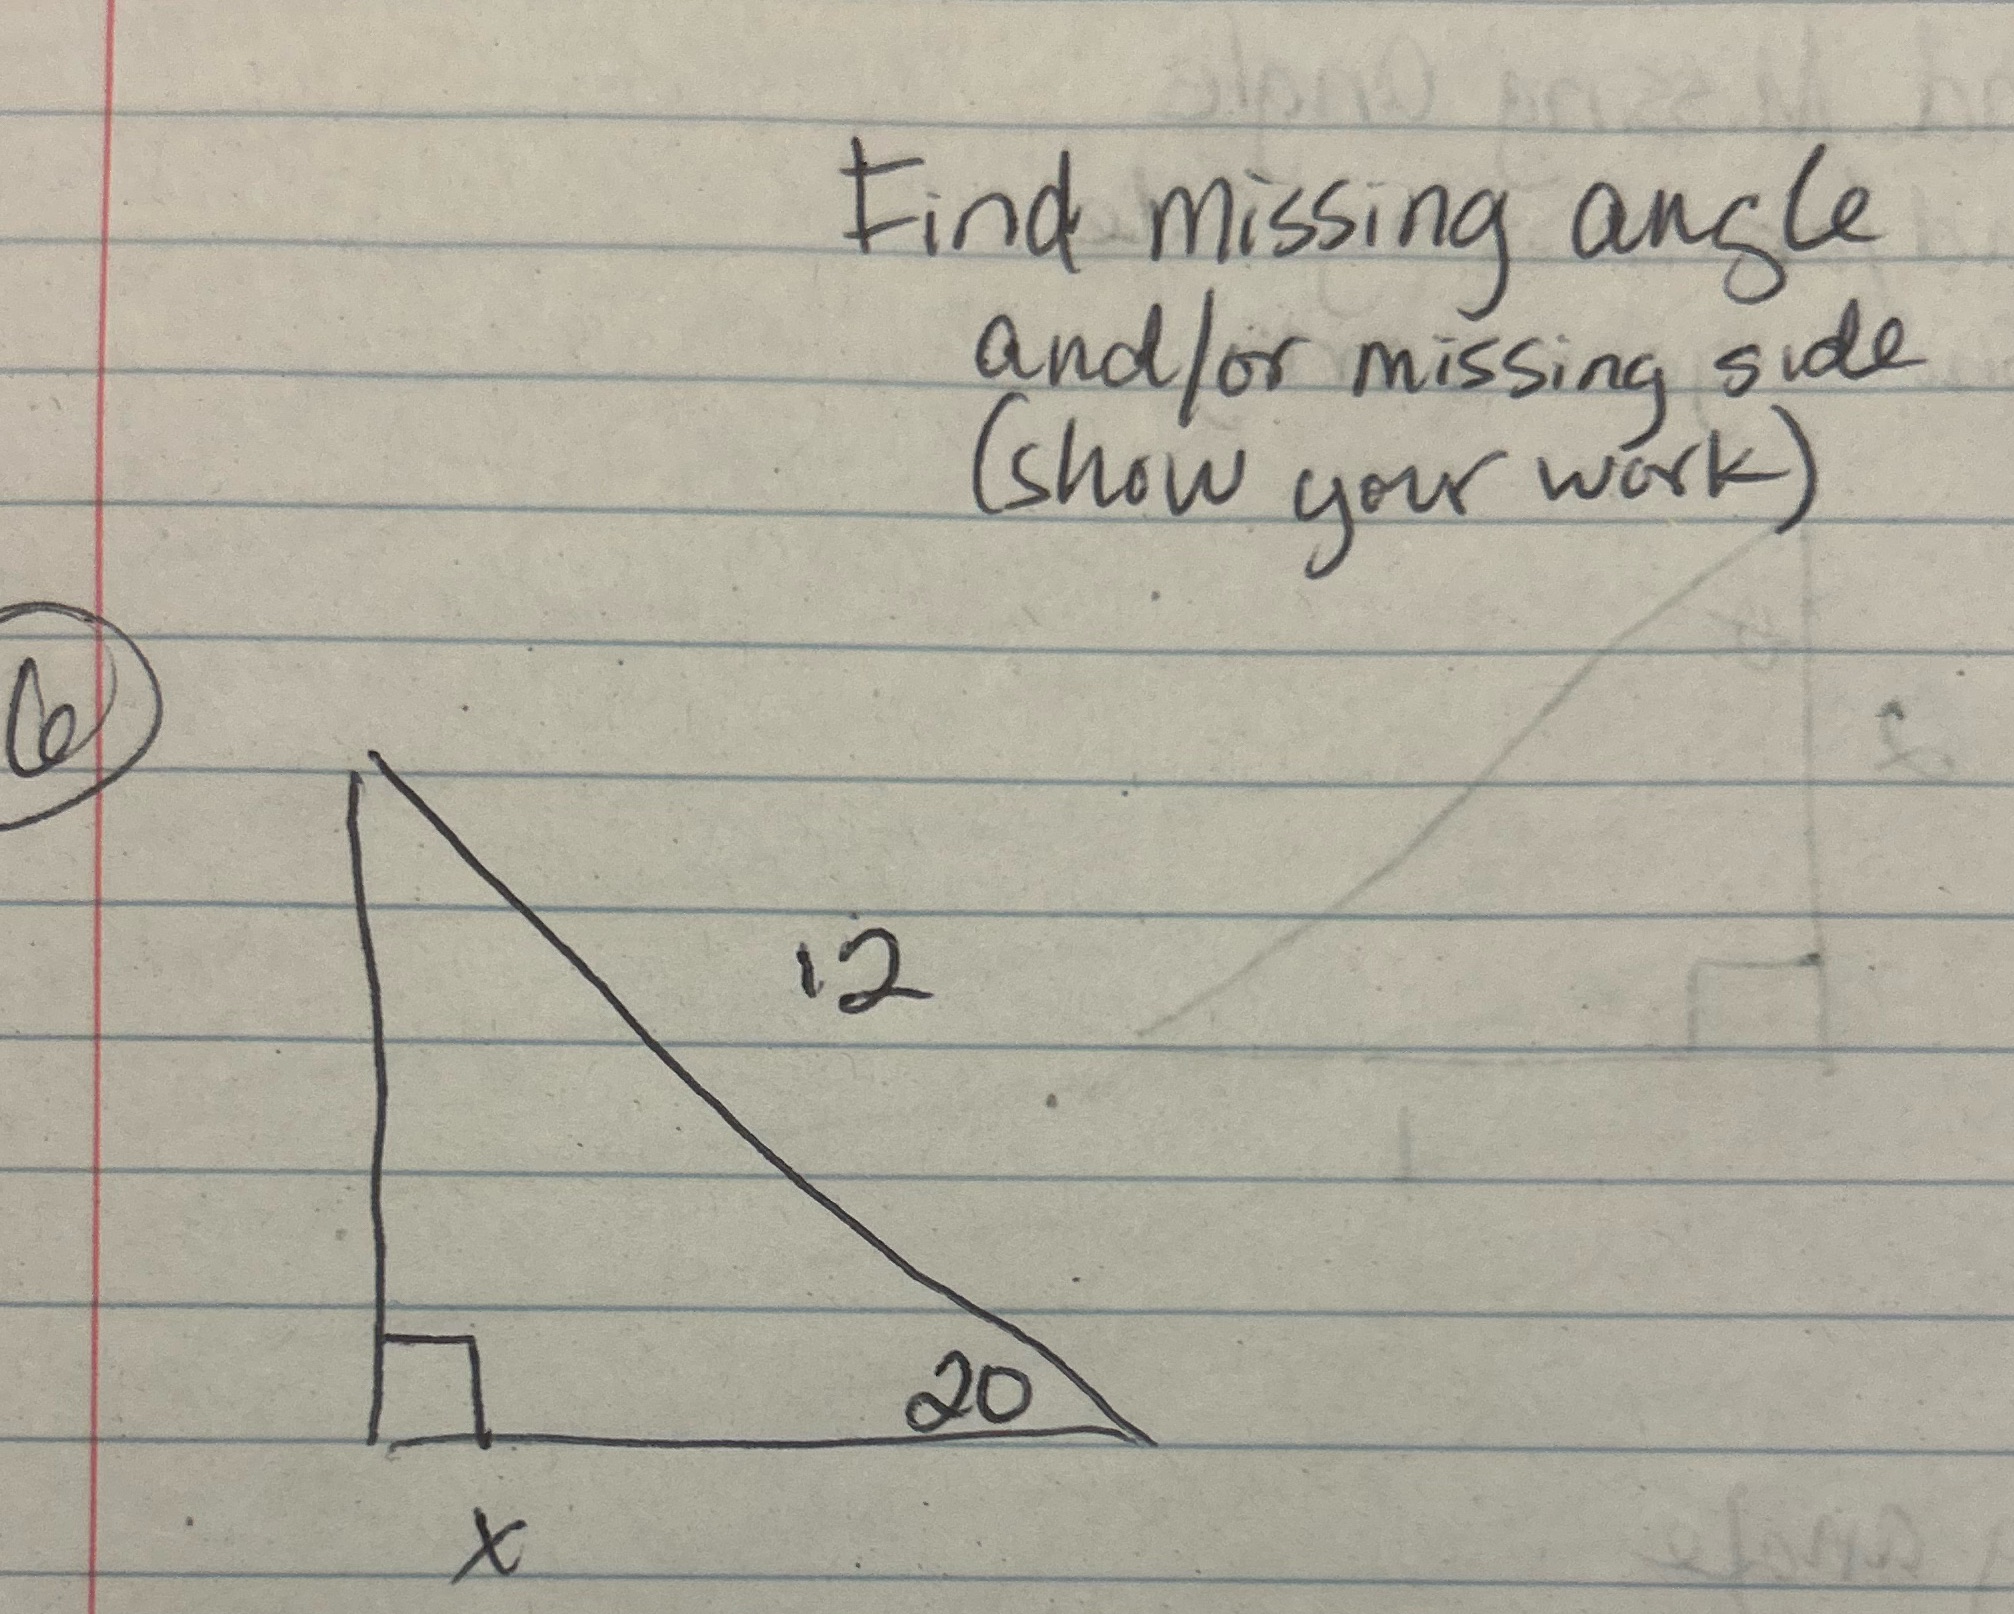 Find missing angle
and/or missing side
(show your work)
6
12
20
x